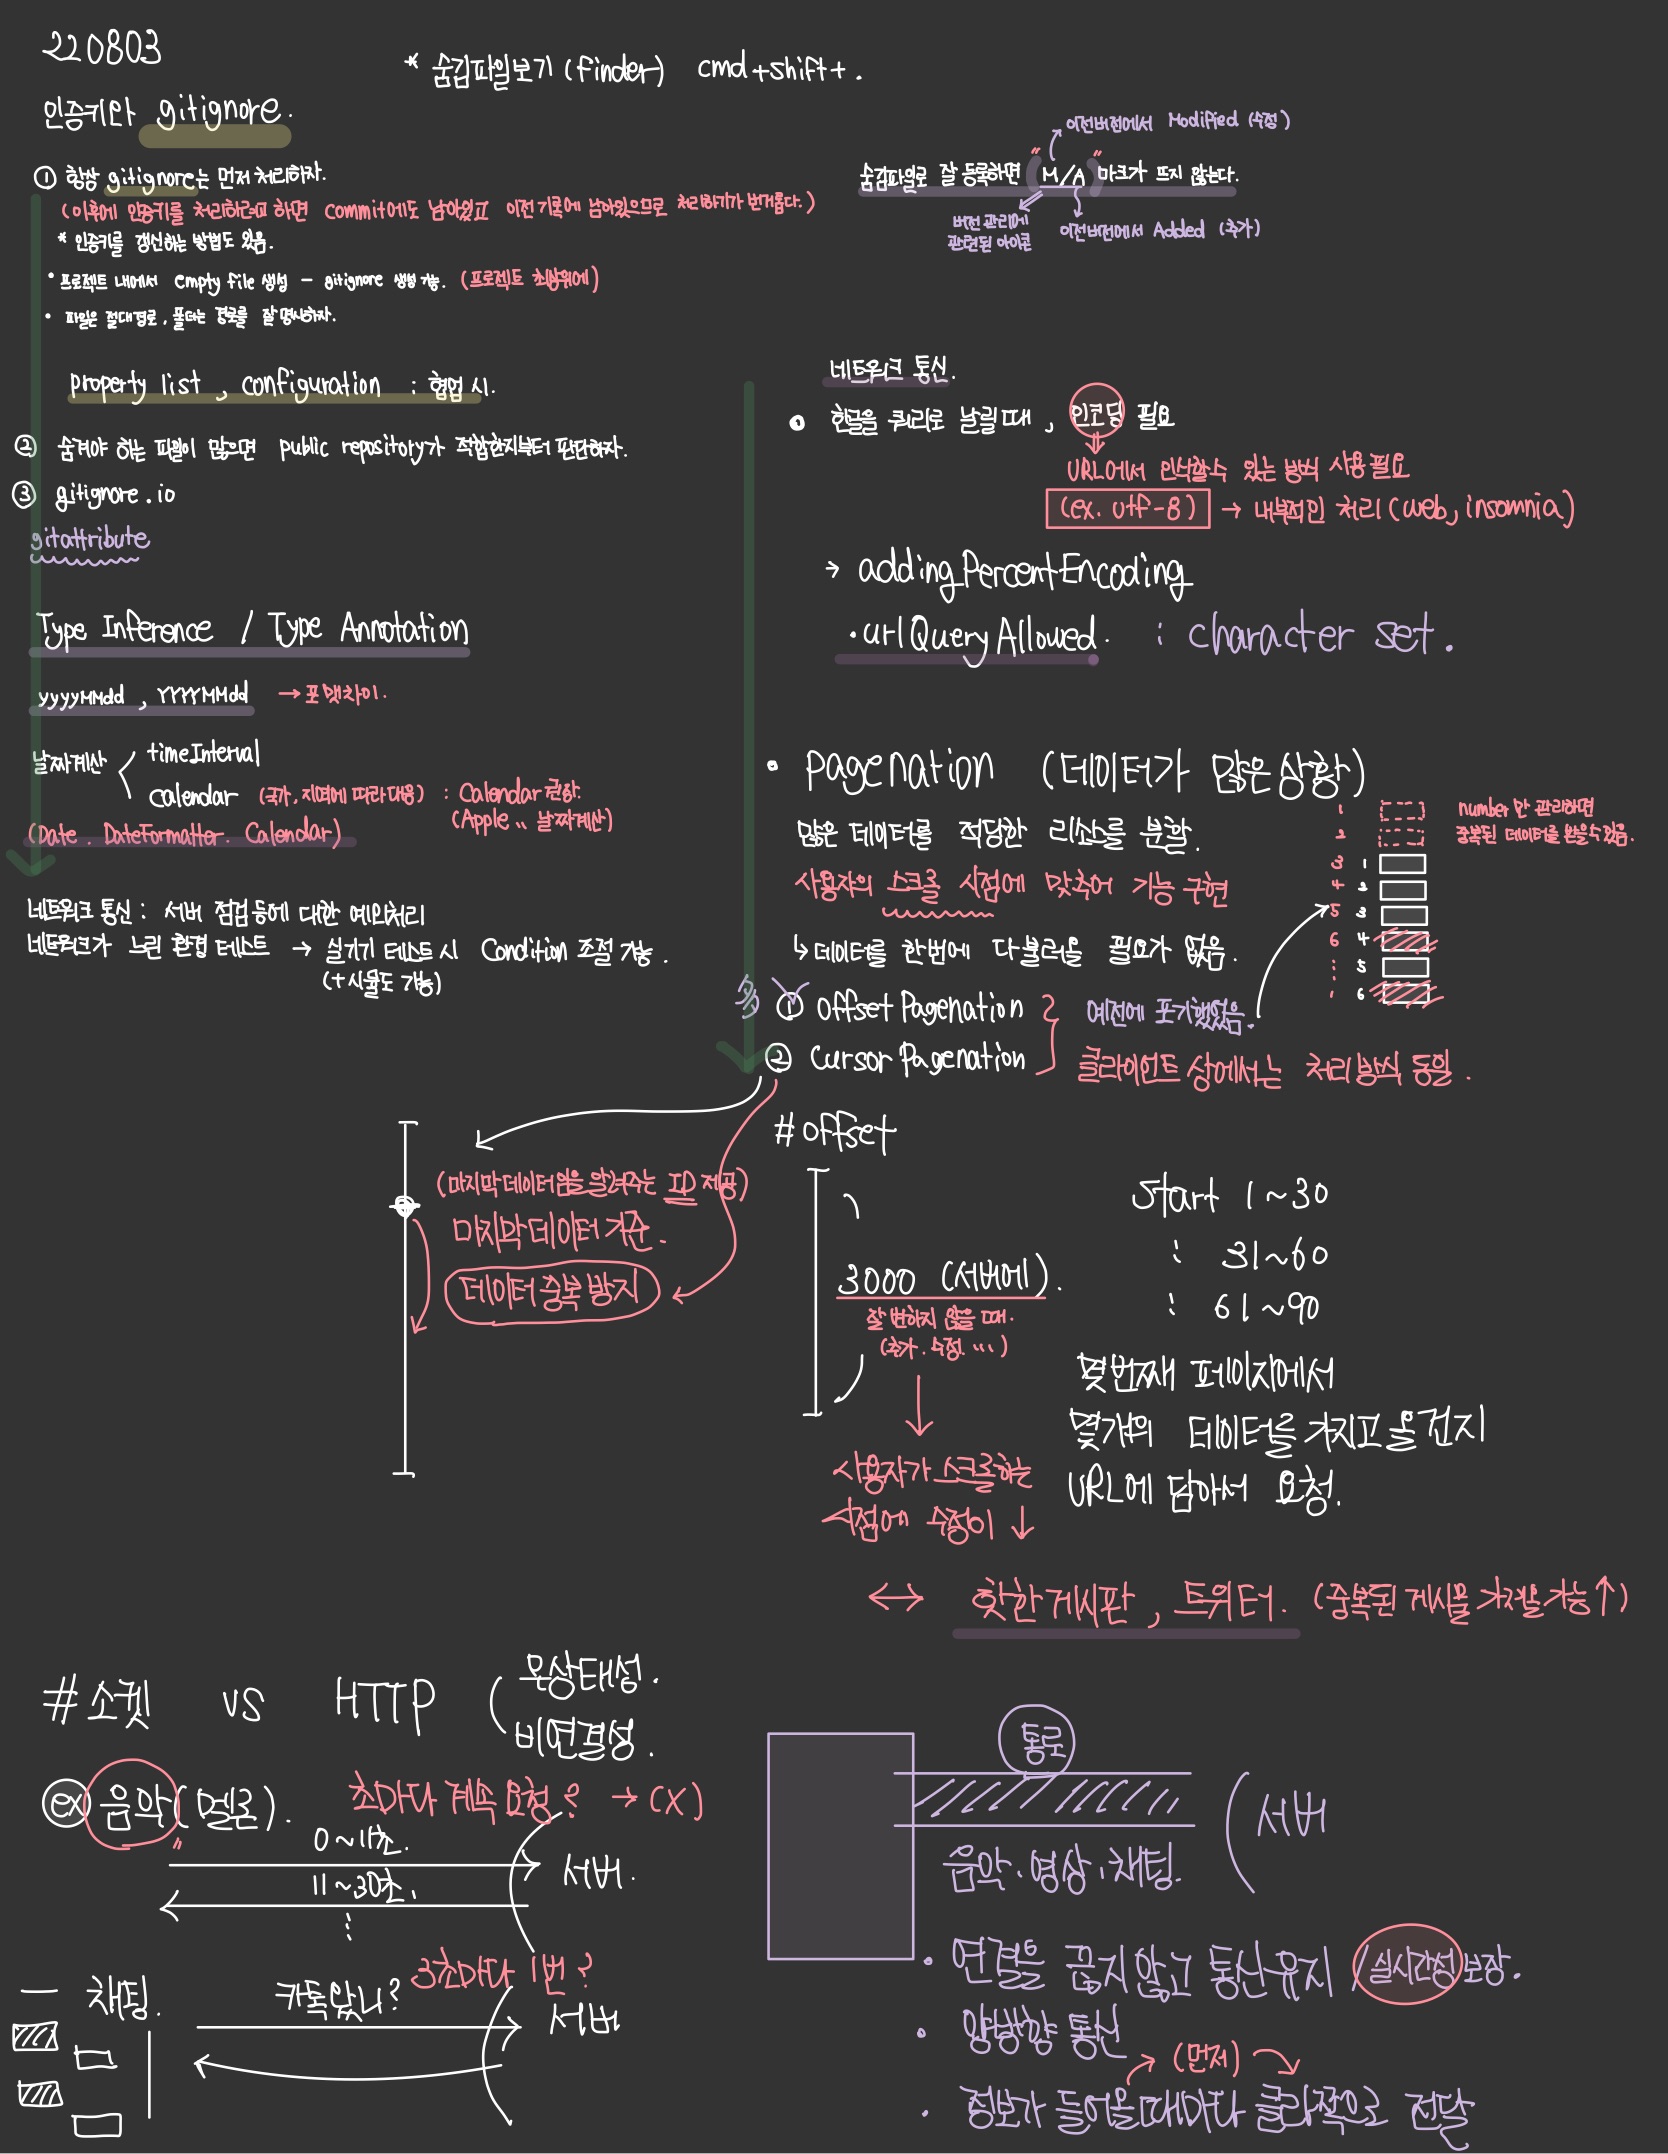 220803
* 숨김파일보기 (finder) cmd+shift+.
인증키와 gitignore.
① 항상 gitignore는 먼저 처리하자.
(이후에 인증키를 처리하려고 하면 commit에도 남아있고 이전기록에 남아있으므로 처리하기가 번거롭다.)
* 인증키를 갱신하는 방법도 있음.
• 프로젝트 내에서 empty file 생성 - gitignore 생성 가능. (프로젝트 최상위에)
• 파일은 절대경로, 폴더는 경로를 잘 명시하자.
property list, configuration : 협업 시.
② 숨겨야 하는 파일이 많으면 public repository가 적합한지부터 판단하자.
③ gitignore.io
gitattribute
Type Inference / Type Annotation
yyyyMMdd, YYYYMMdd → 포맷차이.
날짜계산
timeInterval
calendar (국가, 지역에 따라 대응) : Calendar 권장.
(Apple.. 날짜계산)
(Date. DateFormatter. Calendar)
네트워크 통신 : 서버 점검 등에 대한 예외처리
네트워크가 느린 환경 테스트 → 실기기 테스트 시 Condition 조절 가능.
(+시뮬도 가능)
이전버전에서 Modified (수정)
숨김파일로 잘 등록하면 "M/A" 마크가 뜨지 않는다.
버전 관리에
관련된 아이콘
이전버전에서 Added (추가)
네트워크 통신.
한글을 쿼리로 날릴 때, 인코딩 필요
URL에서 인식할수 있는 방식 사용 필요
(ex. utf-8) → 내부적인 처리 (web, insomnia)
→ addingPercentEncoding
.urlQueryAllowed. : character set.
• pagenation (데이터가 많은 상황)
많은 데이터를 적당한 리소스를 분할.
사용자의 스크롤 시점에 맞추어 기능 구현
↳ 데이터를 한번에 다 불러올 필요가 없음.
① offset Pagenation
예전에 포기했었음.
② Cursor Pagenation
클라이언트 상에서는 처리방식 동일.
number만 관리하면
중복된 데이터를 볼 수 있음.
1
2
3 1
4 2
5 3
6 4
⋮ 5
6
(마지막 데이터임을 알려주는 ID 제공)
마지막 데이터 기준.
데이터 중복 방지
# offset
3000 (서버에).
잘 변하지 않을 때.
(추가. 수정. ...)
사용자가 스크롤하는
시점에 수정이 ↓
Start 1~30
: 31~60
: 61~90
몇번째 페이지에서
몇개의 데이터를 가지고 올건지
URL에 담아서 요청.
↔ 핫한게시판, 트위터. (중복된 게시물 가져올 가능↑)
# 소켓 vs HTTP
무상태성.
비연결성.
ex) 음악 (멜론). 초마다 계속 요청? → (X)
0~11초.
서버.
11~30초,
⋮
3초마다 1번?
— 채팅. 카톡왔니?
서버
통로
서버
음악, 영상, 채팅.
• 연결을 끊지 않고 통신유지 / 실시간성 보장.
• 양방향 통신
(먼저)
• 정보가 들어올 때마다 클라쪽으로 전달